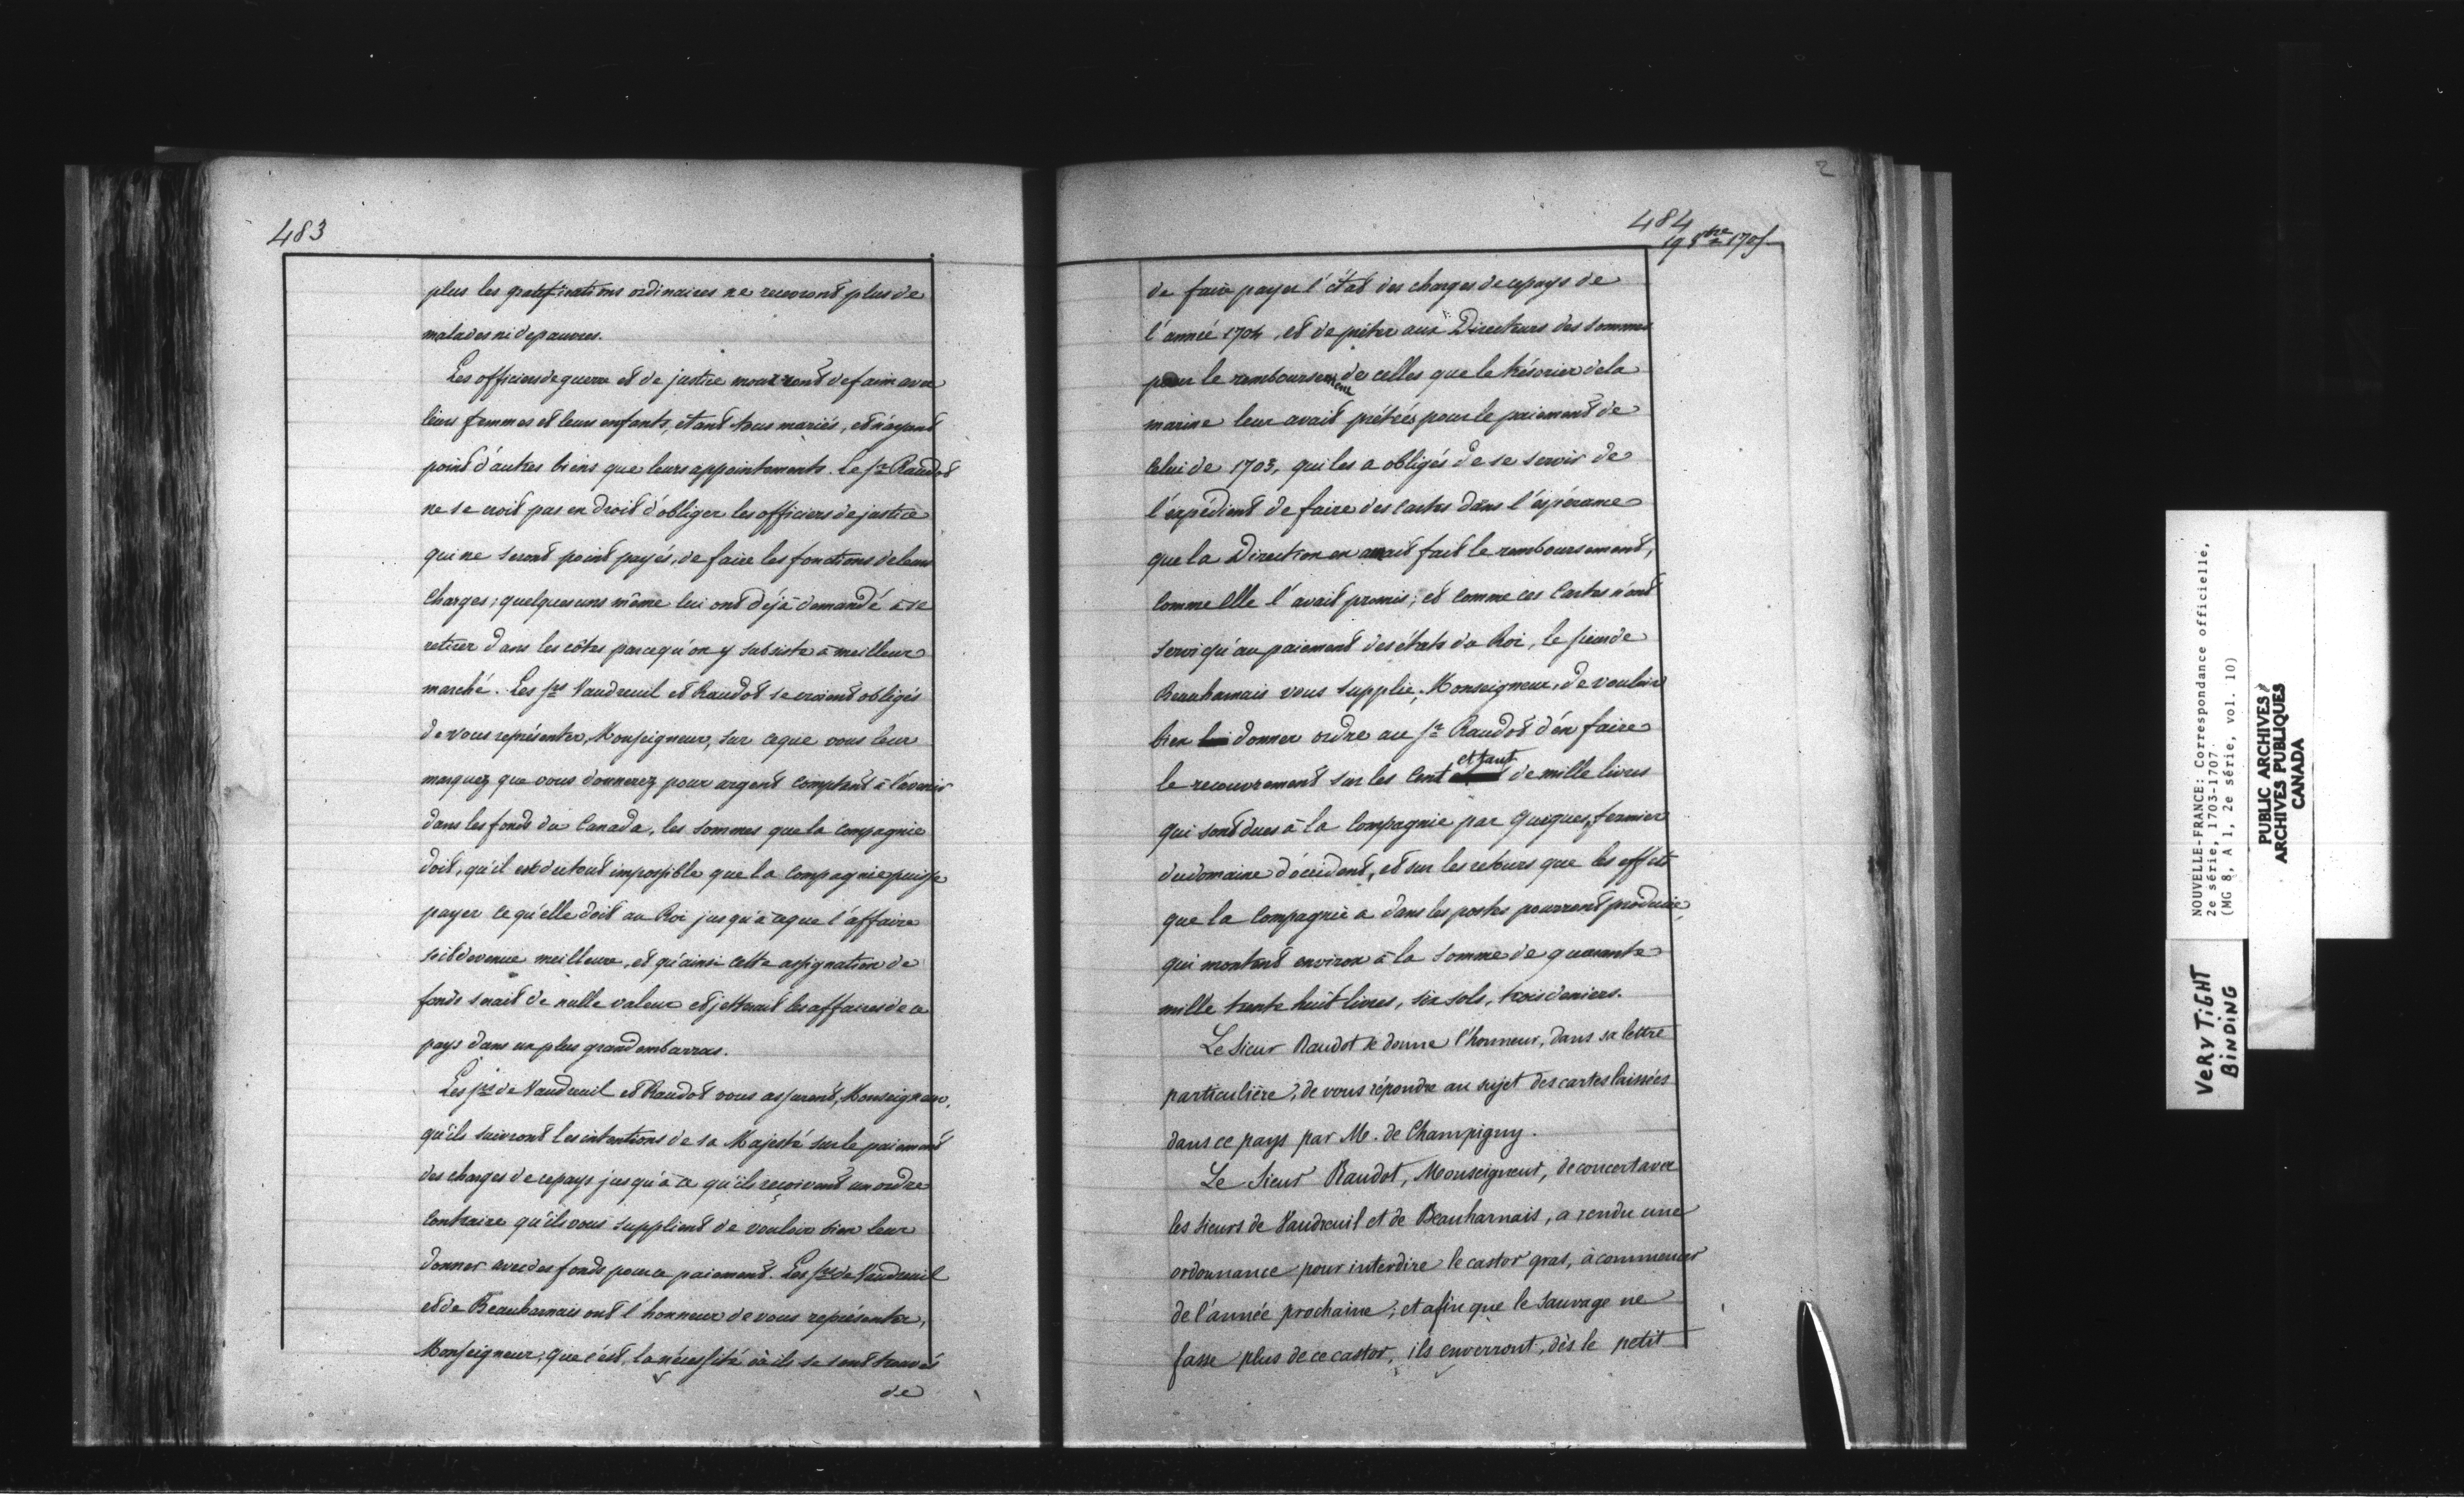 483
plus les gratifications ordinaires ne recevront plus de
malades ni de pauvres.
Les officiers de guerre et de justice mourront de faim avec
leurs femmes et leurs enfants, étant tous mariés, et n'ayant
point d'autres biens que leurs appointements. Le Sr Raudot
ne se croit pas en droit d'obliger les officiers de justice
qui ne seront point payés, de faire les fonctions de leurs
charges; quelques uns même lui ont déjà demandé à se
retirer dans les côtes parcequ'on y subsiste à meilleur
marché. Les Srs Vaudreuil et Raudot se croient obligés
de vous représenter, Monseigneur, sur ce que vous leur
marquez que vous donnerez pour argent comptant à l'avenir
dans les fonds du Canada, les sommes que la compagnie
doit, qu'il est du tout impossible que la compagnie puisse
payer ce qu'elle doit au Roi jusqu'à ce que l'affaire
soit devenue meilleure, et qu'ainsi cette assignation de
fonds serait de nulle valeur et jetterait les affaires de ce
pays dans un plus grand embarras.
Les Srs de Vaudreuil et Raudot vous assurent, Monseigneur,
qu'ils suivront les intentions de sa Majesté sur le paiement
des charges de ce pays jusqu'à ce qu'ils reçoivent un ordre
contraire qu'ils vous supplient de vouloir bien leur
donner avec des fonds pour ce paiement. Les Srs de Vaudreuil
et de Beauharnais ont l'honneur de vous représenter,
Monseigneur, que c'est la nécessité où ils se sont trouvés
de
2
484
19 8bre 1705
de faire payer l'état des charges de ce pays de
l'année 1704, et de prêter aux Directeurs des sommes
pour le remboursement de celles que le trésorier de la
marine leur avait prêtées pour le paiement de
celui de 1703, qui les a obligés de se servir de
l'expédient de faire des cartes dans l'espérance
que la Direction en aurait fait le remboursement,
comme elle l'avait promis; et comme ces cartes n'ont
servi qu'au paiement des états du Roi, le sieur de
Beauharnais vous supplie, Monseigneur, de vouloir
bien donner ordre au Sr Raudot d'en faire
le recouvrement sur les cent et tant de mille livres
qui sont dues à la Compagnie par Guigues, fermier
du domaine d'occident, et sur les retours que les effets
que la Compagnie a dans les postes pourront produire,
qui montent environ à la somme de quarante
mille trente huit livres, six sols, trois deniers.
Le Sieur Raudot se donne l'honneur, dans sa lettre
particulière, de vous répondre au sujet des cartes laissées
dans ce pays par M. de Champigny.
Le Sieur Raudot, Monseigneur, de concert avec
les sieurs de Vaudreuil et de Beauharnais, a rendu une
ordonnance pour interdire le castor gras, à commencer
de l'année prochaine; et afin que le sauvage ne
fasse plus de ce castor, ils enverront, dès le petit
NOUVELLE-FRANCE: Correspondance officielle,
2e série, 1703-1707.
(MG 8, A 1, 2e série, vol. 10)
PUBLIC ARCHIVES
ARCHIVES PUBLIQUES
CANADA
VERY TIGHT
BINDING